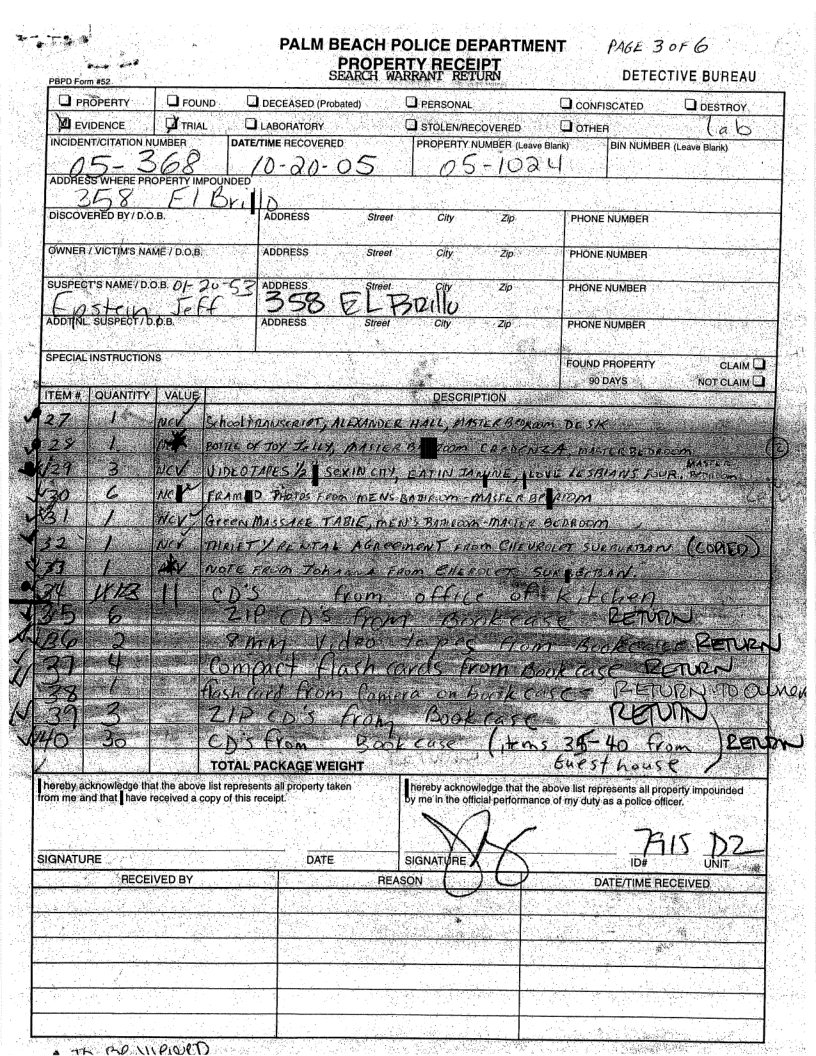 PALM BEACH POLICE DEPARTMENT PAGE 3 OF 6
PROPERTY RECEIPT
SEARCH WARRANT RETURN
PBPD Form #52
DETECTIVE BUREAU
PROPERTY FOUND DECEASED (Probated) PERSONAL CONFISCATED DESTROY
EVIDENCE TRIAL LABORATORY STOLEN/RECOVERED OTHER lab
INCIDENT/CITATION NUMBER DATE/TIME RECOVERED PROPERTY NUMBER (Leave Blank) BIN NUMBER (Leave Blank)
05-368 10-20-05 05-1024
ADDRESS WHERE PROPERTY IMPOUNDED
358 El Brillo
DISCOVERED BY / D.O.B. ADDRESS Street City Zip PHONE NUMBER
OWNER / VICTIM'S NAME / D.O.B. ADDRESS Street City Zip PHONE NUMBER
SUSPECT'S NAME / D.O.B. 01-20-53 ADDRESS Street City Zip PHONE NUMBER
Epstein Jeff 358 EL BRillo
ADDT'NL. SUSPECT / D.O.B. ADDRESS Street City Zip PHONE NUMBER
SPECIAL INSTRUCTIONS
FOUND PROPERTY CLAIM
90 DAYS NOT CLAIM
ITEM # QUANTITY VALUE DESCRIPTION
27 1 NCV School TRANSCRIPT, ALEXANDER HALL, MASTER BEDROOM DESK
28 1 BOTTLE OF JOY JELLY, MASTER CREDENZA, MASTER BEDROOM
29 3 NCV VIDEOTAPES 1/2 SEX IN CITY, EATIN LOVE LESBIANS FOUR, MASTER BEDROOM
30 6 PHOTOS FROM MENS BATHROOM-MASTER
31 1 NCV GREEN MASSAGE TABLE, MEN'S BATHROOM-MASTER BEDROOM
32 1 NCV THRIFTY RENTAL AGREEMENT FROM CHEVROLET SUBURBAN (COPIED)
33 1 NOTE FROM JOHANNA FROM CHEVROLET
34 11 CD'S from office of kitchen
35 6 ZIP CD's from Bookcase RETURN
36 2 8mm Video tapes from Bookcase RETURN
37 4 Compact flash cards from Bookcase RETURN
38 1 flash card from Camera on bookcases RETURN TO OWNER
39 3 ZIP CD's from Bookcase RETURN
40 30 CD's from Bookcase (items 35-40 from Guest house) RETURN
TOTAL PACKAGE WEIGHT
hereby acknowledge that the above list represents all property taken
from me and that have received a copy of this receipt.
hereby acknowledge that the above list represents all property impounded
by me in the official performance of my duty as a police officer.
7915 D2
SIGNATURE DATE SIGNATURE ID# UNIT
RECEIVED BY REASON DATE/TIME RECEIVED